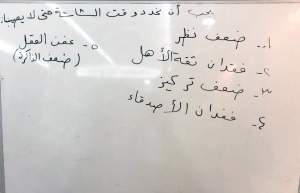 يجب أن نحدد وقت الشاشة حتى لا يصيبنا
١. ضعف نظر
٢. فقدان ثقة الأهل
٣. ضعف تركيز
٤. فقدان الأصدقاء
٥. عفن العقل
(ضعف الذاكرة)